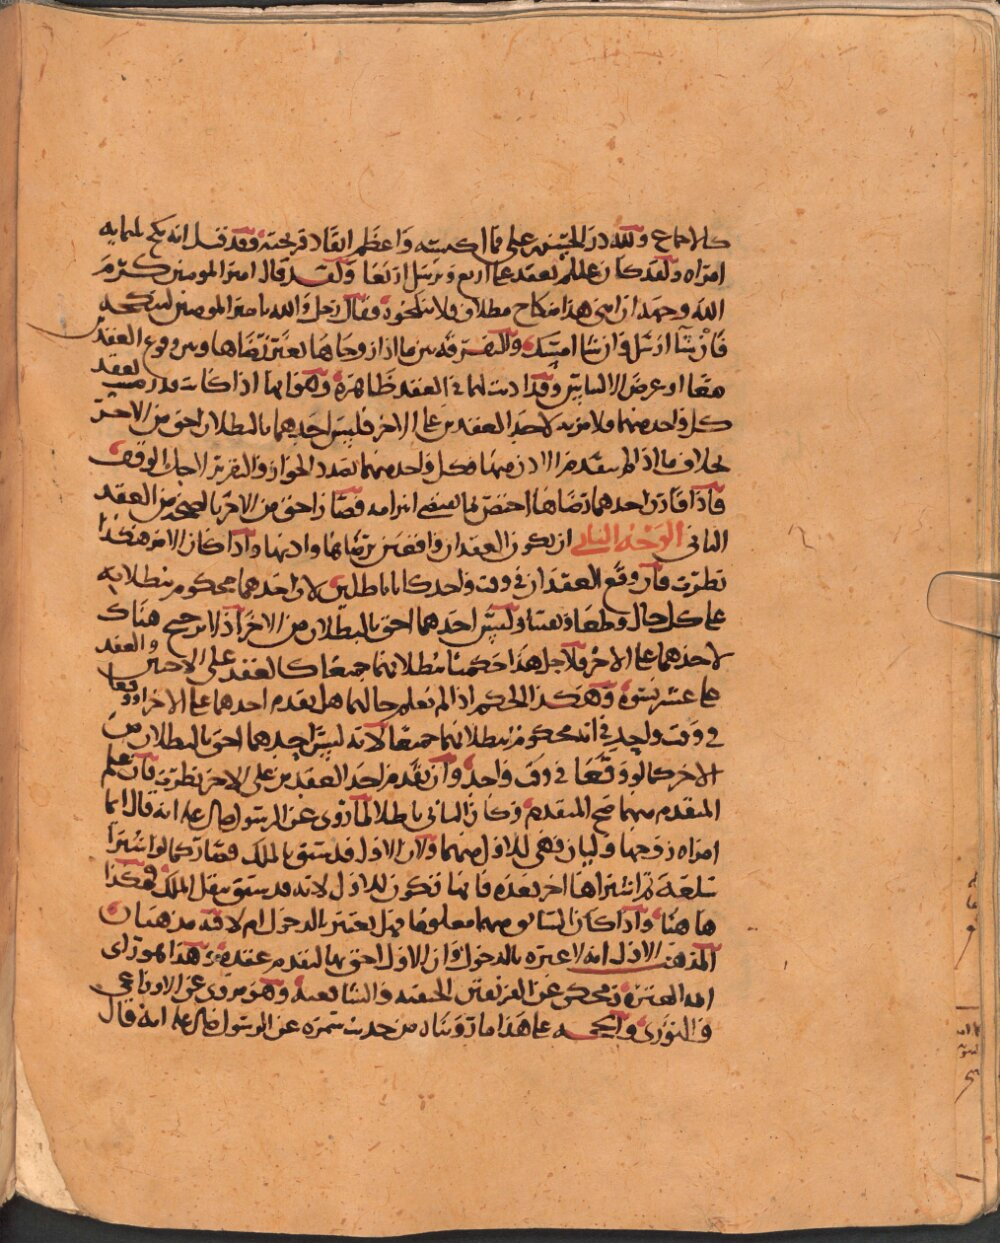 كالاجماع ولله در الحسن بن علي فما اكيسه واعظم اتقاد قريحته فقد قيل انه نكح ثلثمايه
امراه ولقد كان علم يعقد على اربع ويرسل اربعا ولقد قال امير المومنين كرم
الله وجهه ان ابني هذا منكاح مطلاق فلا تنكحوه فقال رجل والله يا امير المومنين لننكحنه
فان شا ارسل وان شا امسك والتفرقه بين ما اذا زوجاها بغير رضاها وبين وقوع العقدين
معا او عرض الالتباس وقد اذنت لهما في العقد ظاهرة وهو انها اذا كانت قد رضيت لعقد
كل واحد منهما فلا مزيه لاحد العقدين على الاخر فليس احدهما بالبطلان احق من الاخر
بخلاف ما اذا لم يتقدم الاذن منها فكل واحد منهما بصدد الجواز والتقرير لاجل الوقف
فاذا قارن احدهما رضاها اختص بما يقتضي ابرامه فصار احق من الاخر بالصحه من العقد
الثاني الوجه الثاني ان يكون العقدان واقعين برضاها واذنها واذا كان الامر هكذا
نظرت فان وقع العقدان في وقت واحد كانا باطلين لان احدهما محكوم ببطلانه
على كل حال وطعا وليس احدهما احق بالبطلان من الاخر اذ لا ترجيح هناك
لاحدهما على الاخر فلاجل هذا حكمنا ببطلانهما جميعا كالعقد على الاختين والعقد
على عشر نسوة وهكذا الحكم اذا لم نعلم حالهما هل تقدم احدهما على الاخر او وقعا
في وقت واحد في انه محكوم ببطلانهما جميعا لانه ليس احدهما احق بالبطلان من
الاخر كما لو وقعا في وقت واحد وان تقدم احد العقدين على الاخر نظرت فان علم
المتقدم منهما صح المتقدم وكان الثاني باطلا لما روي عن الرسول صلى الله عليه انه قال ايما
امراه زوجها وليان فهي للاول منهما ولان الاول قد سبق بالملك فصار كما لو اشترا
سلعة ثم اشتراها اخر بعده فانها تكون للاول لانه قد سبق بنقل الملك فهكذا
ها هنا واذا كان السابق منهما معلوما فهل يعتبر بالدخول ام لا فيه مذهبان
المذهب الاول انه لا عبره بالدخول وان الاول احق بها لتقدم عقده وهذا هو راي
ايمه العتره ومحكي عن الفريقين الحنفيه والشافعيه وهو مروي عن الاوزاعي
والثوري والحجه على هذا ما رويناه من حديث سمره عن الرسول صلى الله عليه انه قال